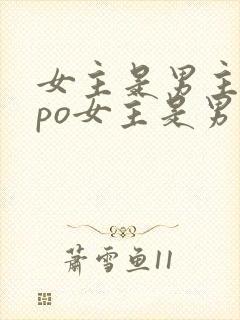 女主是男主
po女主是男
萧雪鱼11